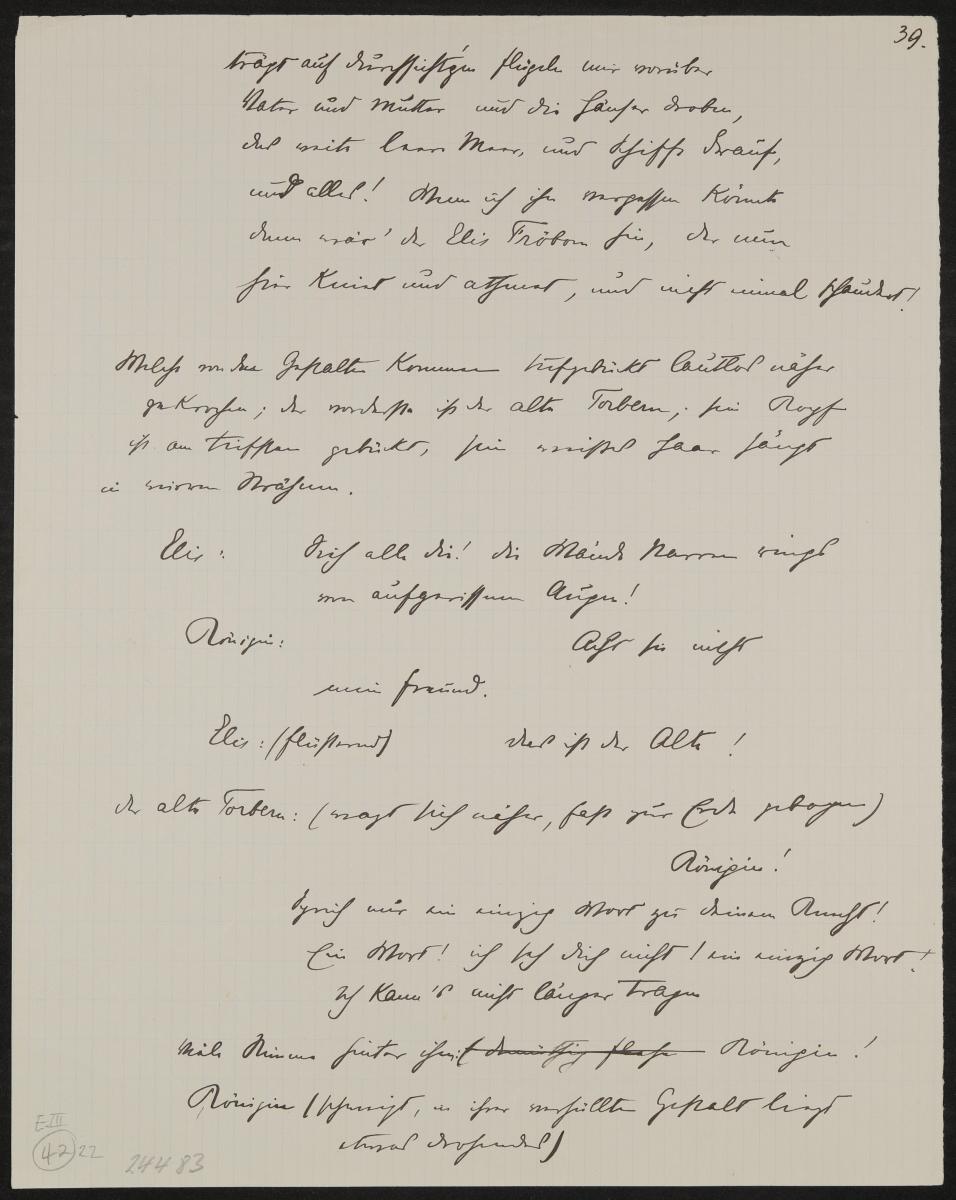 39.
trägt auf durchsicht'gen Flügeln mir vorüber
Vater und Mutter und die Häuser droben,
das weite leere Meer, und Schiffe drauf,
und alles! Wenn ich ihn vergessen könnte
dann wär' der Elis Fröbom hin, der nun
hier kniet und athmet, und nicht einmal schaudert!
Welche von den Gestalten kommen tiefgebückt lautlos näher
gekrochen; der vorderste ist der alte Torbern; sein Kopf
ist am tiefsten gebückt, sein weisses Haar hängt
in wirren Strähnen.
Elis: Sieh alle die! die Wände starren rings
von aufgerissnen Augen!
Königin: Acht sie nicht
mein Freund.
Elis: (flüsternd) das ist der Alte!
der alte Torbern: (wagt sich näher, fast zur Erde gebogen)
Königin!
Sprich nur ein einzig Wort zu deinem Knecht!
Ein Wort! ich seh dich nicht! ein einzig Wort!
Ich kann's nicht länger tragen
viele Stimmen hinter ihm: Königin!
Königin (schweigt, in ihrer verhüllten Gestalt liegt
etwas drohendes)
E III
42 22
24483